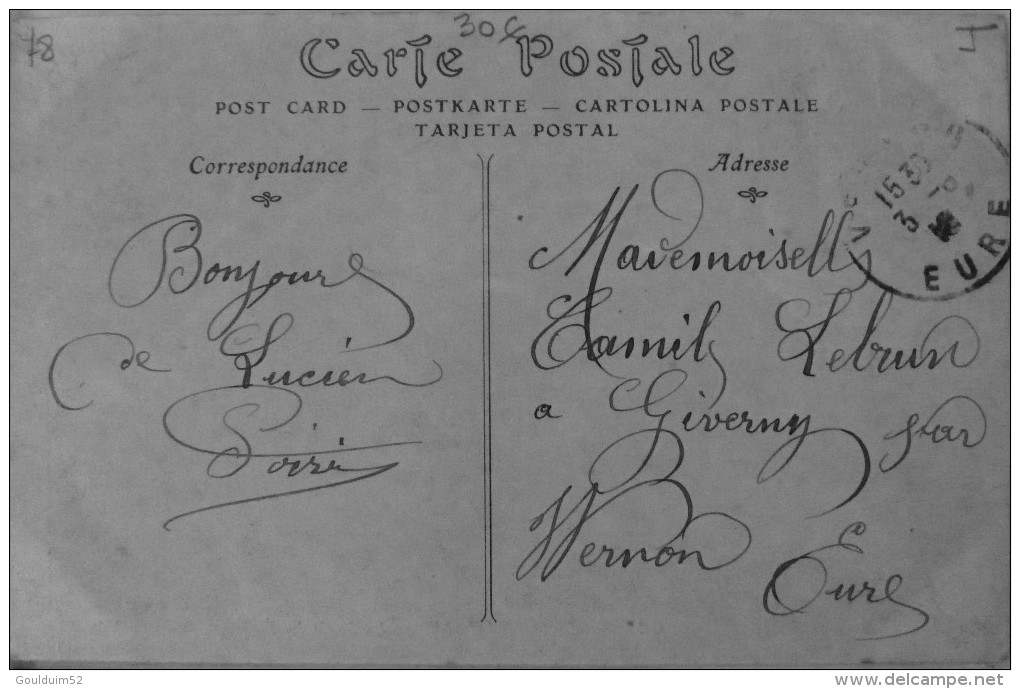 78
30€
Carte Postale
POST CARD — POSTKARTE — CARTOLINA POSTALE
TARJETA POSTAL
Correspondance
Bonjour
de Lucien
Poire
Adresse
Mademoiselle
Camile Lebrun
a Giverny par
Vernon
Eure
15 30
3
EURE
Goulduim52
delcampe.net